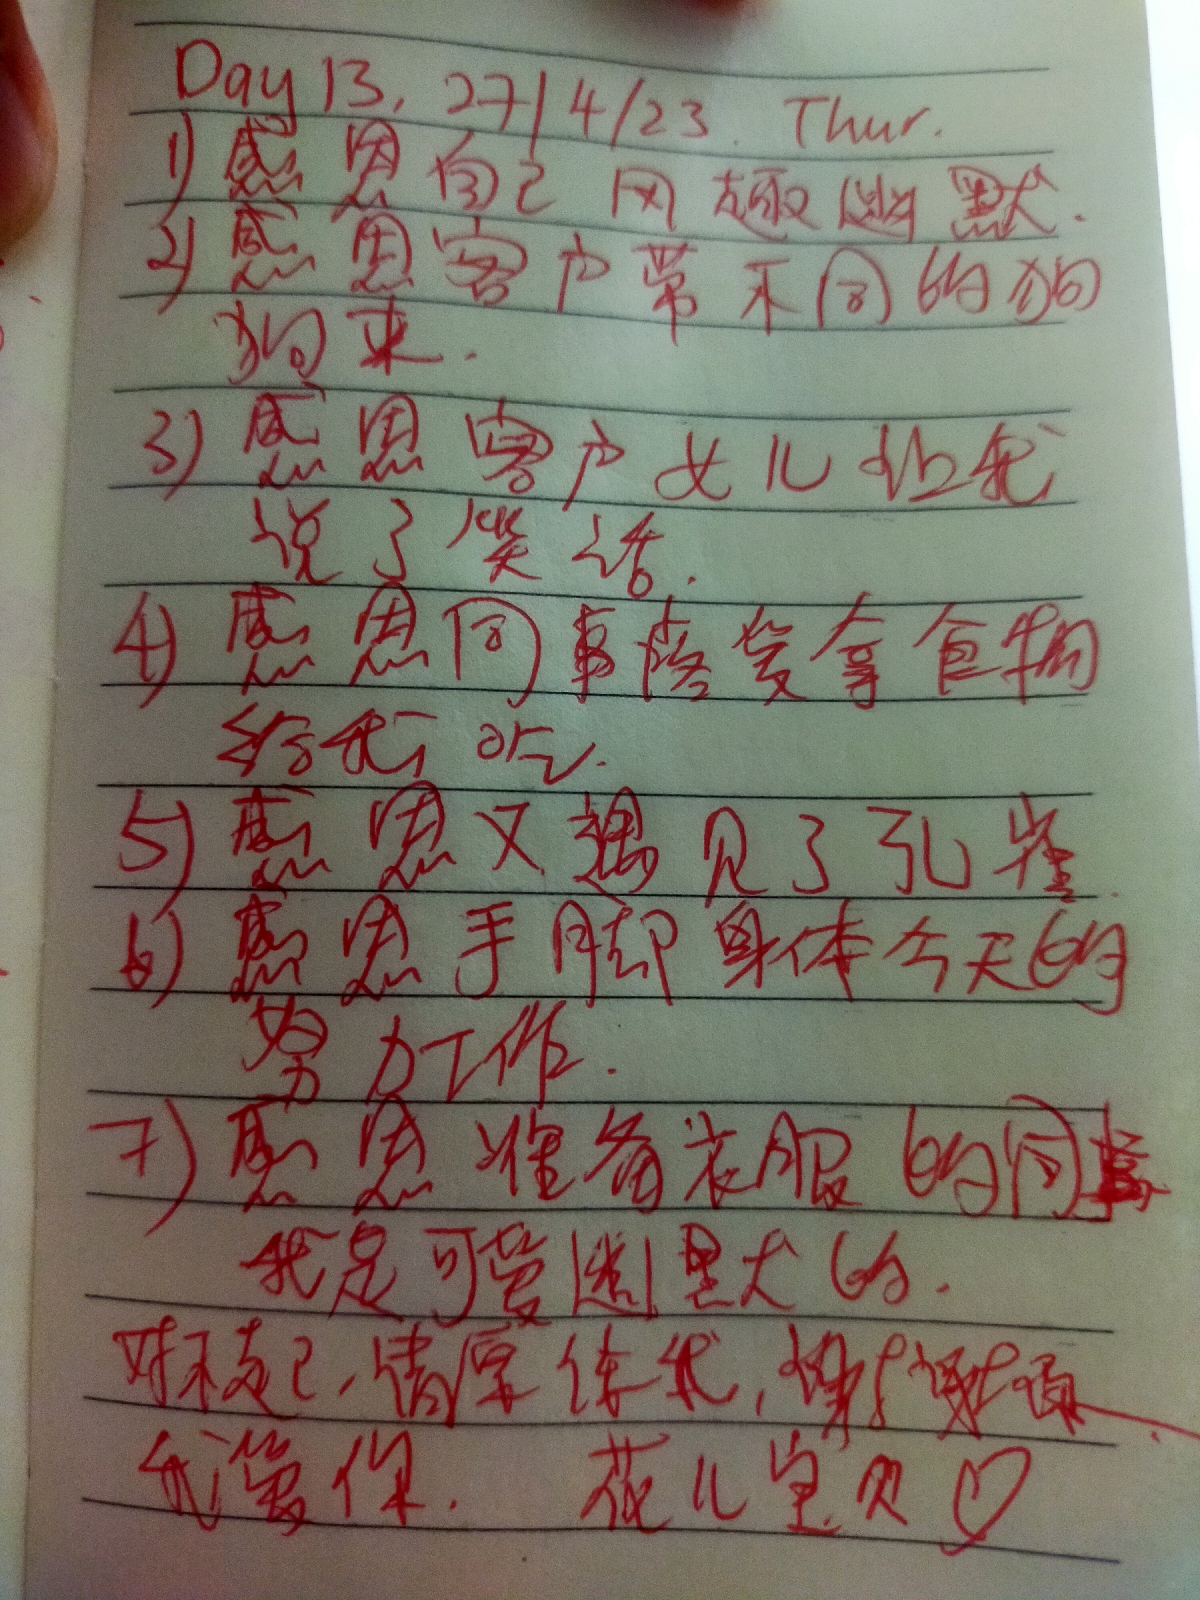 Day 13, 27/4/23. Thur.
1) 感恩自己风趣幽默.
2) 感恩客户带不同的狗
狗来.
3) 感恩客户女儿给我
说了笑话.
4) 感恩同事隆发拿食物
给我吃.
5) 感恩又遇见了孔雀.
6) 感恩手脚身体今天的
努力工作.
7) 感恩准备衣服的同事
我是可爱幽默的.
对不起,请原谅我,谢谢
我爱你. 花儿宝贝♡